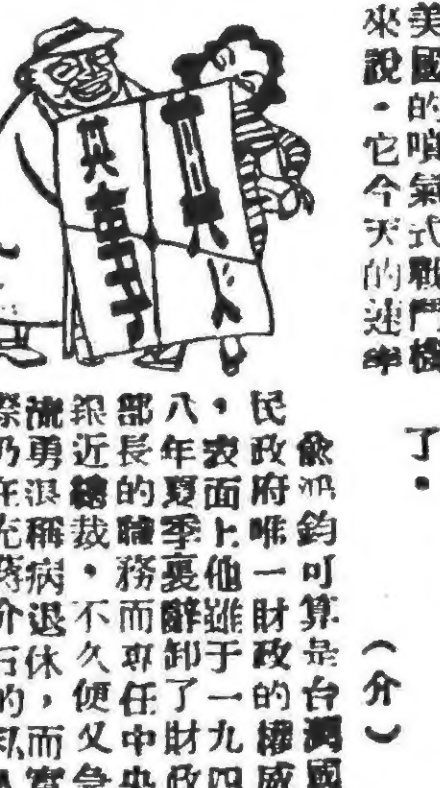 美國的噴氣式戰鬥機
來說·它今天的速率
了。
（介）
俞鴻鈞可算是台灣國
民政府唯一財政的權威
，表面上他雖于一九四
八年夏季裏辭卸了財政
部長的職務而專任中央
銀近總裁，不久便又急
流勇退稱病退休，而實
際仍在充蔣介石的私人